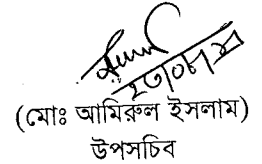 (মোঃ আমিরুল ইসলাম)
উপসচিব